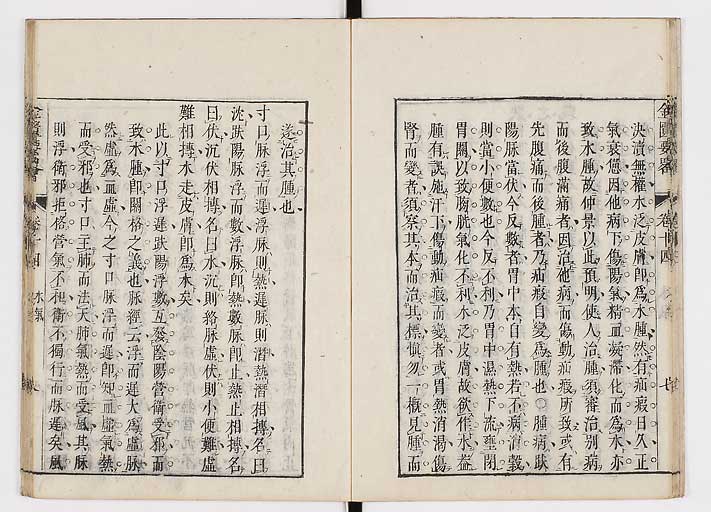 決瀆無權水泛皮膚卽爲水腫然有疝瘕日久正
氣衰憊因他病下傷陽氣精血凝滯化而爲水亦
致水腫故仲景以此預明使人治腫須審治別病
而後腹滿痛者因治他病而傷動疝瘕所致或有
先腹痛而後腫者乃疝瘕自變爲腫也○腫病趺
陽脉當伏今反數者胃中本自有熱若不病消穀
則當小便數也今反不利乃胃中濕熱下流壅閉
胃關以致膀胱氣化不利水泛皮膚故欲作水葢
腫有誤施汗下傷動疝瘕而變者或胃熱消渴傷
腎而變者須察其本而治其標愼勿一概見腫而
遂治其腫也
寸口脉浮而遲浮脉則熱遲脉則潛熱潛相摶名曰
沈趺陽脉浮而數浮脉卽熱數脉卽止熱止相摶名
曰伏沉伏相摶名曰水沉則絡脉虛伏則小便難虛
難相摶水走皮膚卽爲水矣
此以寸口浮遲趺陽浮數互發陰陽營衛受邪而
致水腫卽關格之義也脉經云浮而遲大爲虛脉
然虛爲血虛今之寸口脉浮而遲卽知血虛氣熱
而受邪也寸口主肺而法天肺氣熱而受風其脉
則浮衛邪拒格營氣不和衛不獨行而脉遲矣風
卷十四
水氣
卷十四